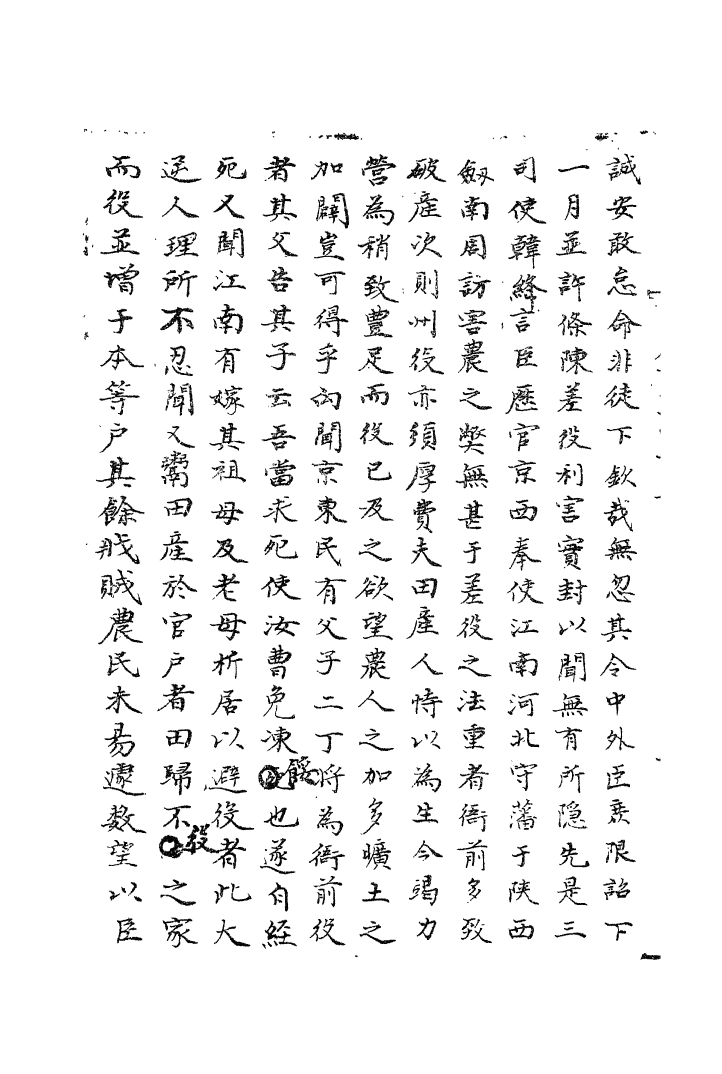 誠安敢怠命非徒下欽哉無忽其令中外臣庶限詔下
一月並許條陳差役利害實封以聞無有所隱先是三
司使韓絳言臣歷官京西奉使江南河北守藩于陝西
劔南周訪害農之獘無甚于差役之法重者衙前多致
破產次則州役亦須厚費夫田產人恃以為生今竭力
營為稍致豊足而役已及之欲望農人之加多曠土之
加闢豈可得乎向聞京東民有父子二丁將為衙前役
者其父告其子云吾當求死使汝曹免凍餒也遂自経
死又聞江南有嫁其祖母及老母析居以避役者此大
逆人理所不忍聞又鬻田產於官戶者田歸不役之家
而役並增于本等戶其餘戕賊農民未易遽数望以臣